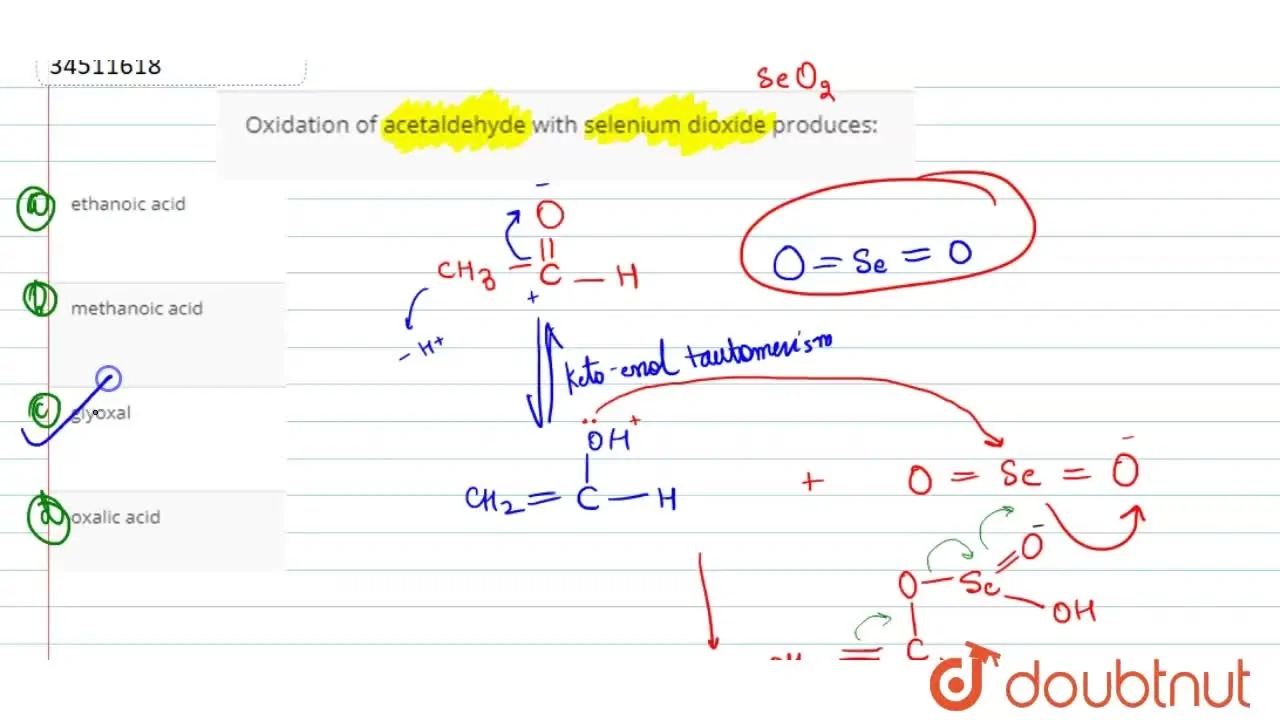 34511618
SeO2
Oxidation of acetaldehyde with selenium dioxide produces:
a ethanoic acid
b methanoic acid
c glyoxal
d oxalic acid
O
CH3 - C - H
+
- H+
O = Se = O
keto-enol tautomerism
OH+
CH2 = C - H
+ O = Se = O
O - Se = O
OH
C
doubtnut